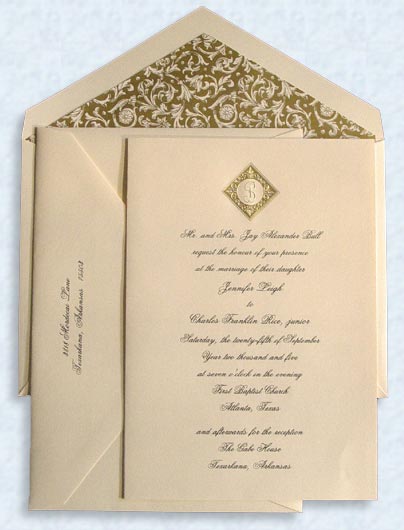 Mr. and Mrs. Jay Alexander Bull
request the honour of your presence
at the marriage of their daughter
Jennifer Leigh
to
Charles Franklin Rice, junior
Saturday, the twenty-fifth of September
Year two thousand and five
at seven o'clock in the evening
First Baptist Church
Atlanta, Texas
and afterwards for the reception
The Gabe House
Texarkana, Arkansas
Lane
Texarkana, Arkansas